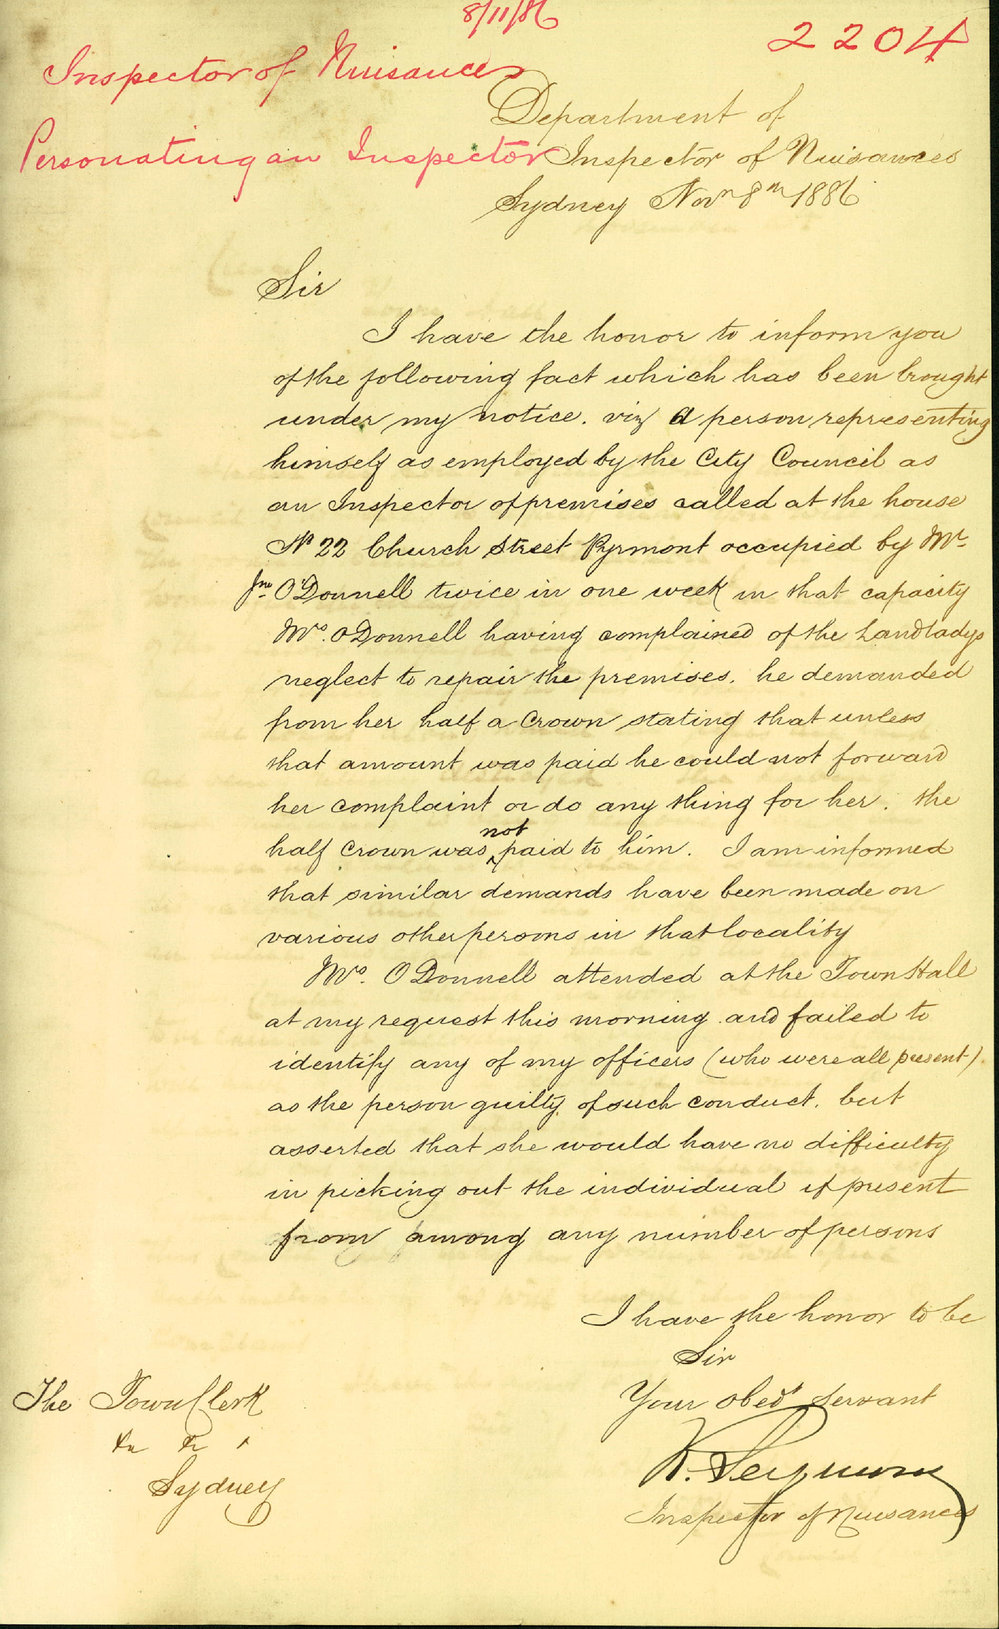 8/11/86
2204
Inspector of Nuisances
Personating an Inspector
Department of
Inspector of Nuisances
Sydney Novr 8th 1886
Sir
I have the honor to inform you
of the following fact which has been brought
under my notice. viz a person representing
himself as employed by the City Council as
an Inspector of premises called at the house
No 22 Church Street Pyrmont occupied by Mr.
Jno O'Donnell twice in one week in that capacity
Mrs. O'Donnell having complained of the Landladys
neglect to repair the premises. he demanded
from her half a Crown stating that unless
that amount was paid he could not forward
her complaint or do any thing for her. the
half Crown was not paid to him. I am informed
that similar demands have been made on
various other persons in that locality
Mrs. O'Donnell attended at the Town Hall
at my request this morning and failed to
identify any of my officers (who were all present)
as the person guilty of such conduct. but
asserted that she would have no difficulty
in picking out the individual if present
from among any number of persons
I have the honor to be
Sir
Your obedt servant
R. Seymour
Inspector of Nuisances
The Town Clerk
Sydney